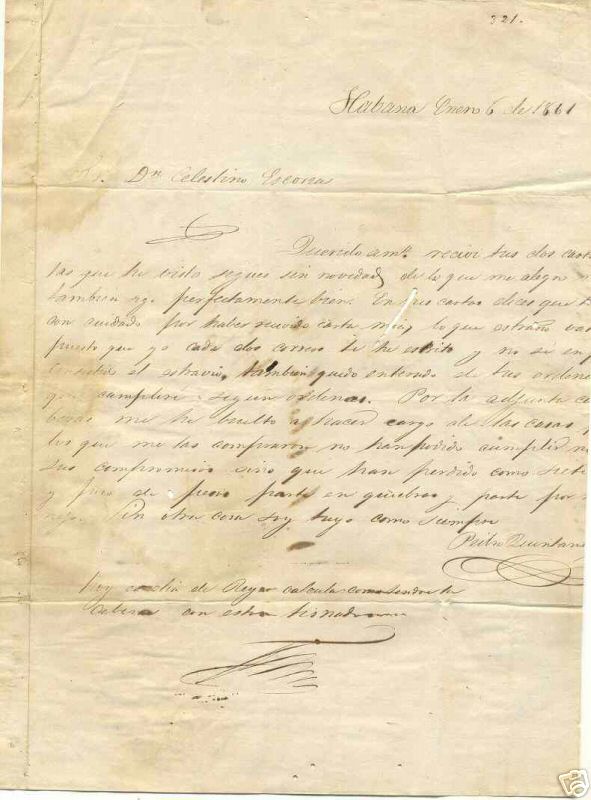 321.
Habana Enero 6 de 1861
Sr. Dn Celestino Escorza
Querido amo. recivi tus dos cart
tas que he visto sigues sin novedad, de lo que me alegro
tambien yo perfectamente bien. En tus cartas dices que
con cuidado por haber recivido carta mia, lo que estraño
puesto que yo cada dos correos te he escrito y no se en
consiste el estravio, tambien quedo enterado de tus ordene
que cumplire segun ordenas. Por la adjunta
beras me he buelto a hacer cargo de las casas
los que me las compraron no han podido cumplir
sus compromisos sino que han perdido como siete
y pico de pesos parte en quiebras y parte por
Sin otra cosa soy tuyo como siempre
Pedro Quintana
Hoy es dia de Reyes calcula como tendre la
cabeza con estos